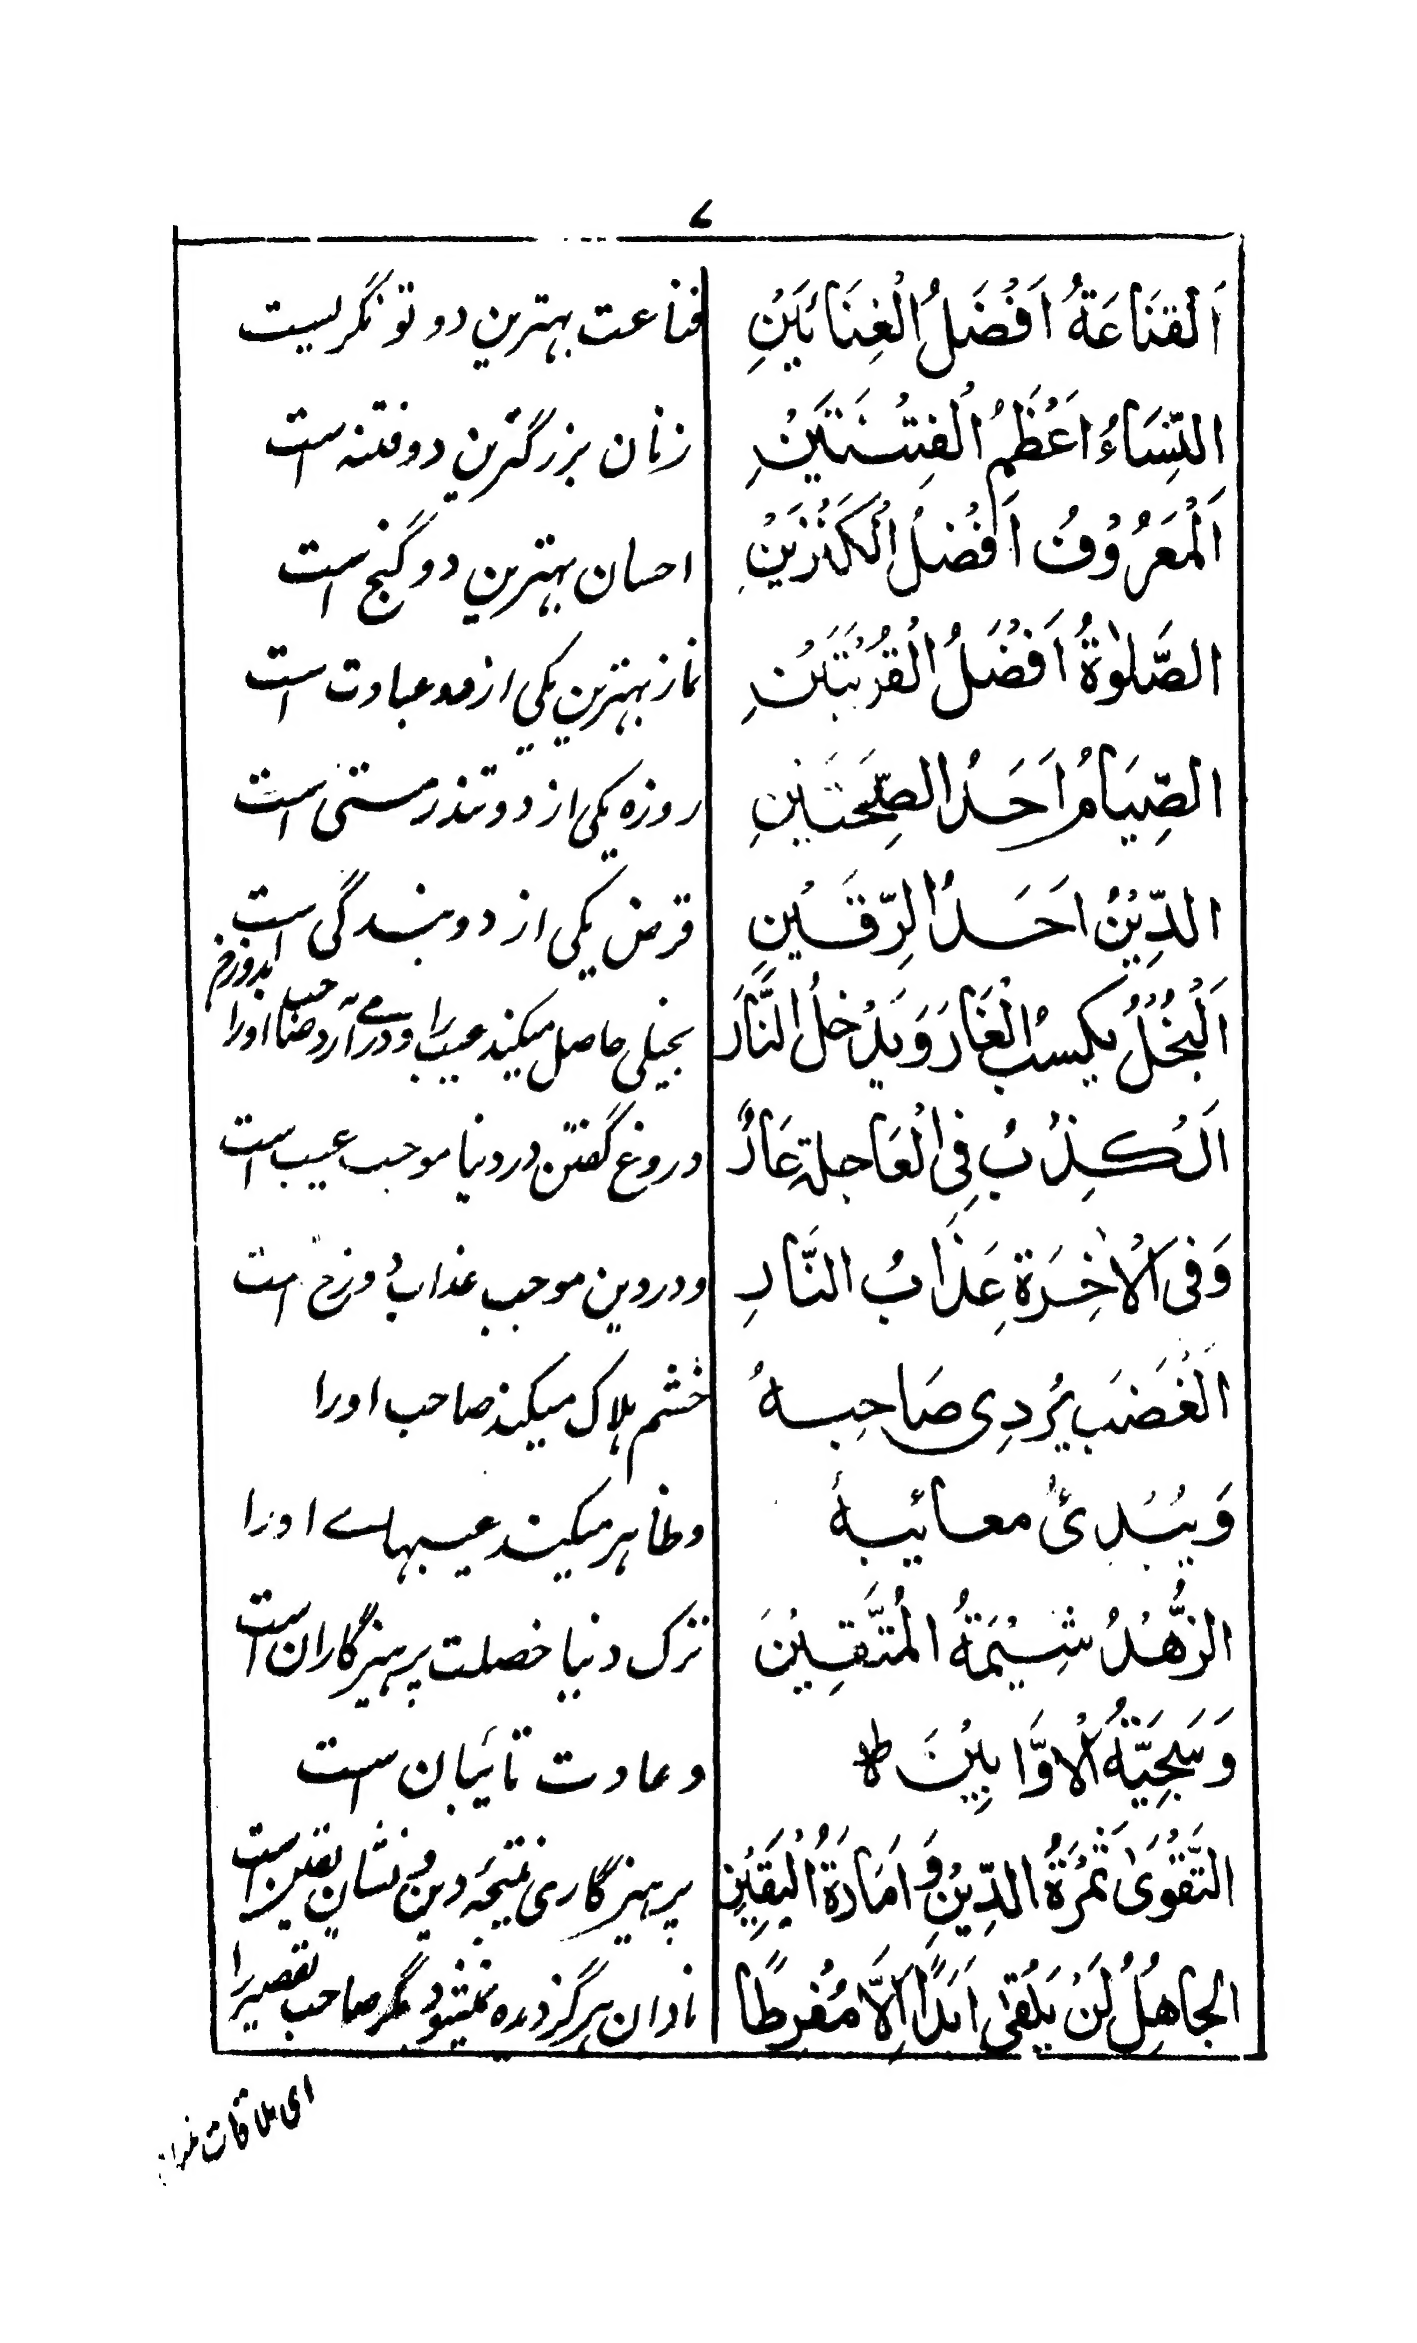 ۷
اَلْقَنَاعَةُ اَفْضَلُ الْغِنَائَيْنِ قناعت بهترین دو تونگریست
النِّسَاءُ اَعْظَمُ الْفِتْنَتَيْنِ زنان بزرگترین دو فتنه است
اَلْمَعْرُوْفُ اَفْضَلُ الْكَنْزَيْنِ احسان بهترین دو گنج است
الصَّلٰوةُ اَفْضَلُ الْقُرْبَتَيْنِ نماز بهترین یکی از دو عبادت است
الصِّيَامُ اَحَدُ الصِّحَّتَيْنِ روزه یکی از دو تندرستی است
الدَّيْنُ اَحَدُ الرِّقَّيْنِ قرض یکی از دو بندگی است
اَلْبُخْلُ يَكْسِبُ الْعَارَ وَ يَدْخِلُ النَّارَ بخیلی حاصل میکند عیب را و در می آرد صاحب اورا بدوزخ
اَلْكِذْبُ فِی الْعَاجِلَةِ عَارٌ دروغ گفتن در دنیا موجب عیب است
وَفِی الْاٰخِرَةِ عَذَابُ النَّارِ و در دین موجب عذاب دوزخ است
اَلْغَضَبُ يُرْدِی صَاحِبهُ خشم هلاک میکند صاحب اورا
وَ يُبْدِیُٔ معائبهُ و ظاهر میکند عیبهاے اورا
الزُّهْدُ شِيْمَةُ الْمُتَّقِيْنَ ترک دنیا خصلت پرهیزگاران است
وَسَجِيَّةُ الْاَوَّابِيْنَ ط و عادت تائبان است
التَّقْوٰی ثَمَرَةُ الدِّيْنِ وَ اَمَارَةُ الْيَقِيْنِ پرهیزگاری نتیجهٔ دین و نشان یقین است
الجَاهِلُ لَنْ يَلْقٰی اَبَدًا اِلَّا مُفْرِطًا نادان هرگز دیده نمیشود مگر صاحب تقصیر را
ای ملاقات